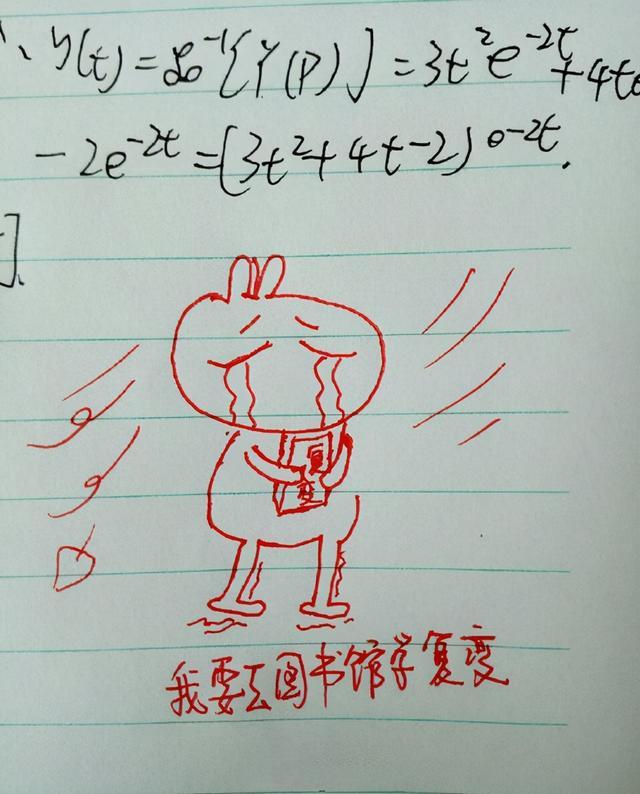 y(t)=ℒ⁻¹[Y(P)]=3t²e⁻²ᵗ+4te
-2e⁻²ᵗ=(3t²+4t-2)e⁻²ᵗ.
].
复
变
我要去图书馆学复变